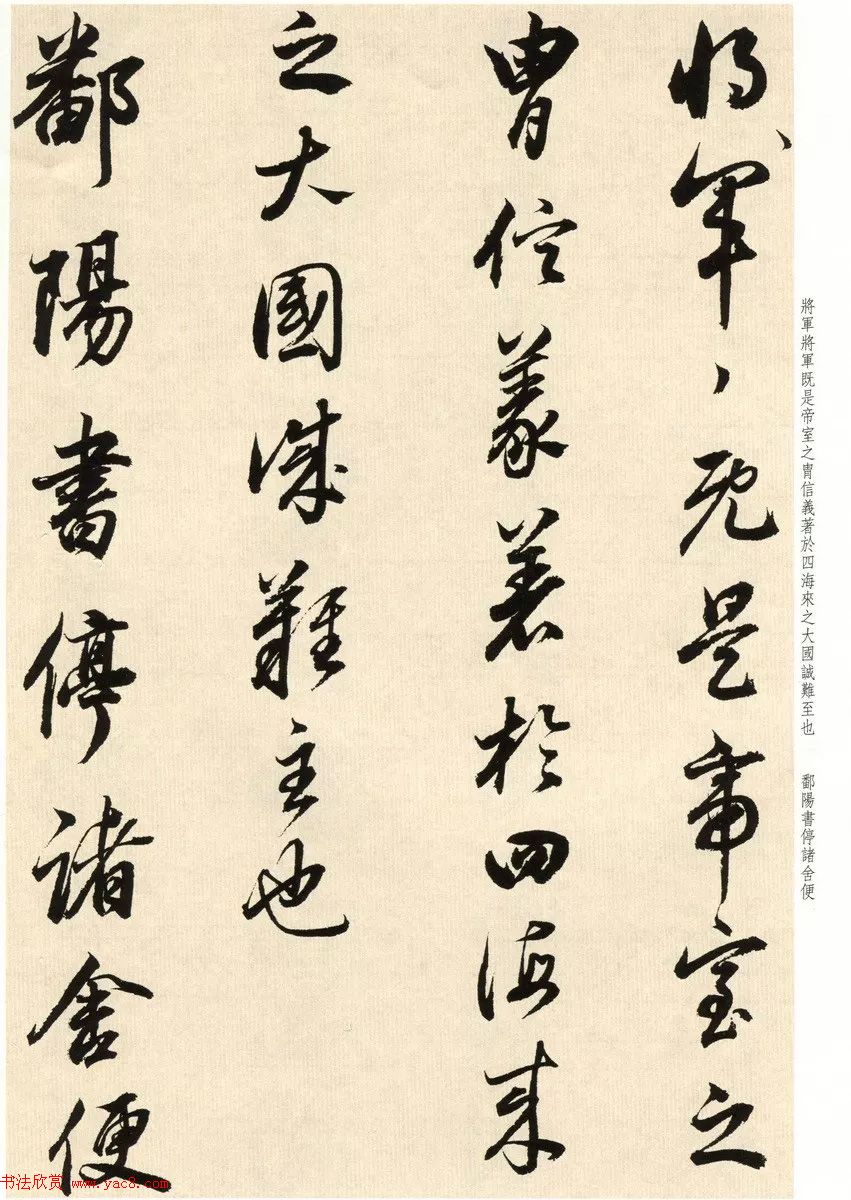 將軍〻既是帝室之
胄信義著於四海來
之大國誠難至也
鄱陽書停諸舍便
將軍將軍既是帝室之胄信義著於四海來之大國誠難至也 鄱陽書停諸舍便
书法欣赏 www.yac8.com